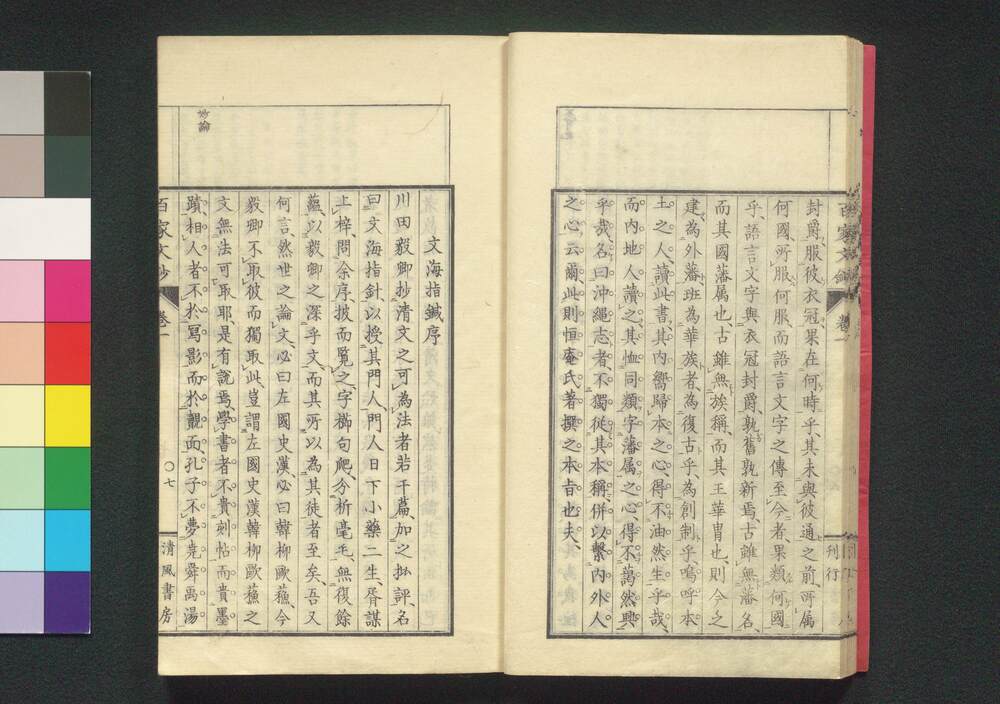 封爵、服彼衣冠、果在何時乎、其未與彼通之前、所属
何國、所服何服、而語言文字之傳至今者、果類何國
乎、語言文字與衣冠封爵、孰舊孰新焉、古雖無藩名、
而其國藩属也、古雖無族稱、而其王華冑也、則今之
建為外藩、班為華族者、為復古乎、為創制乎、嗚呼本
土之人、讀此書、其內嚮歸本之心、得不油然生乎哉、
而內地人讀之、其恤同類字藩属之心、得不藹然興
乎哉、名曰沖繩志者、不獨從其本稱、併以繫內外人
之心云爾、此則恒庵氏著撰之本旨也夫、
百家文鈔
卷一
刊行
妙論
文海指鍼序
川田毅卿抄清文之可為法者若干篇、加之批評、名
曰文海指針、以授其門人、門人日下小藥二生、胥謀
上梓、問余序、披而覧之、字櫛句爬、分析毫毛、無復餘
蘊、以毅卿之深乎文、而其所以為其徒者至矣、吾又
何言、然世之論文、必曰左國史漢、必曰韓柳歐蘓、今
毅卿不取彼而獨取此、豈謂左國史漢韓柳歐蘓之
文無法可取耶、是有說焉、學書者不貴刻帖而貴墨
蹟、相人者不於寫影而於覿面、孔子不夢堯舜禹湯
百家文鈔
卷一
〇七
清風書房